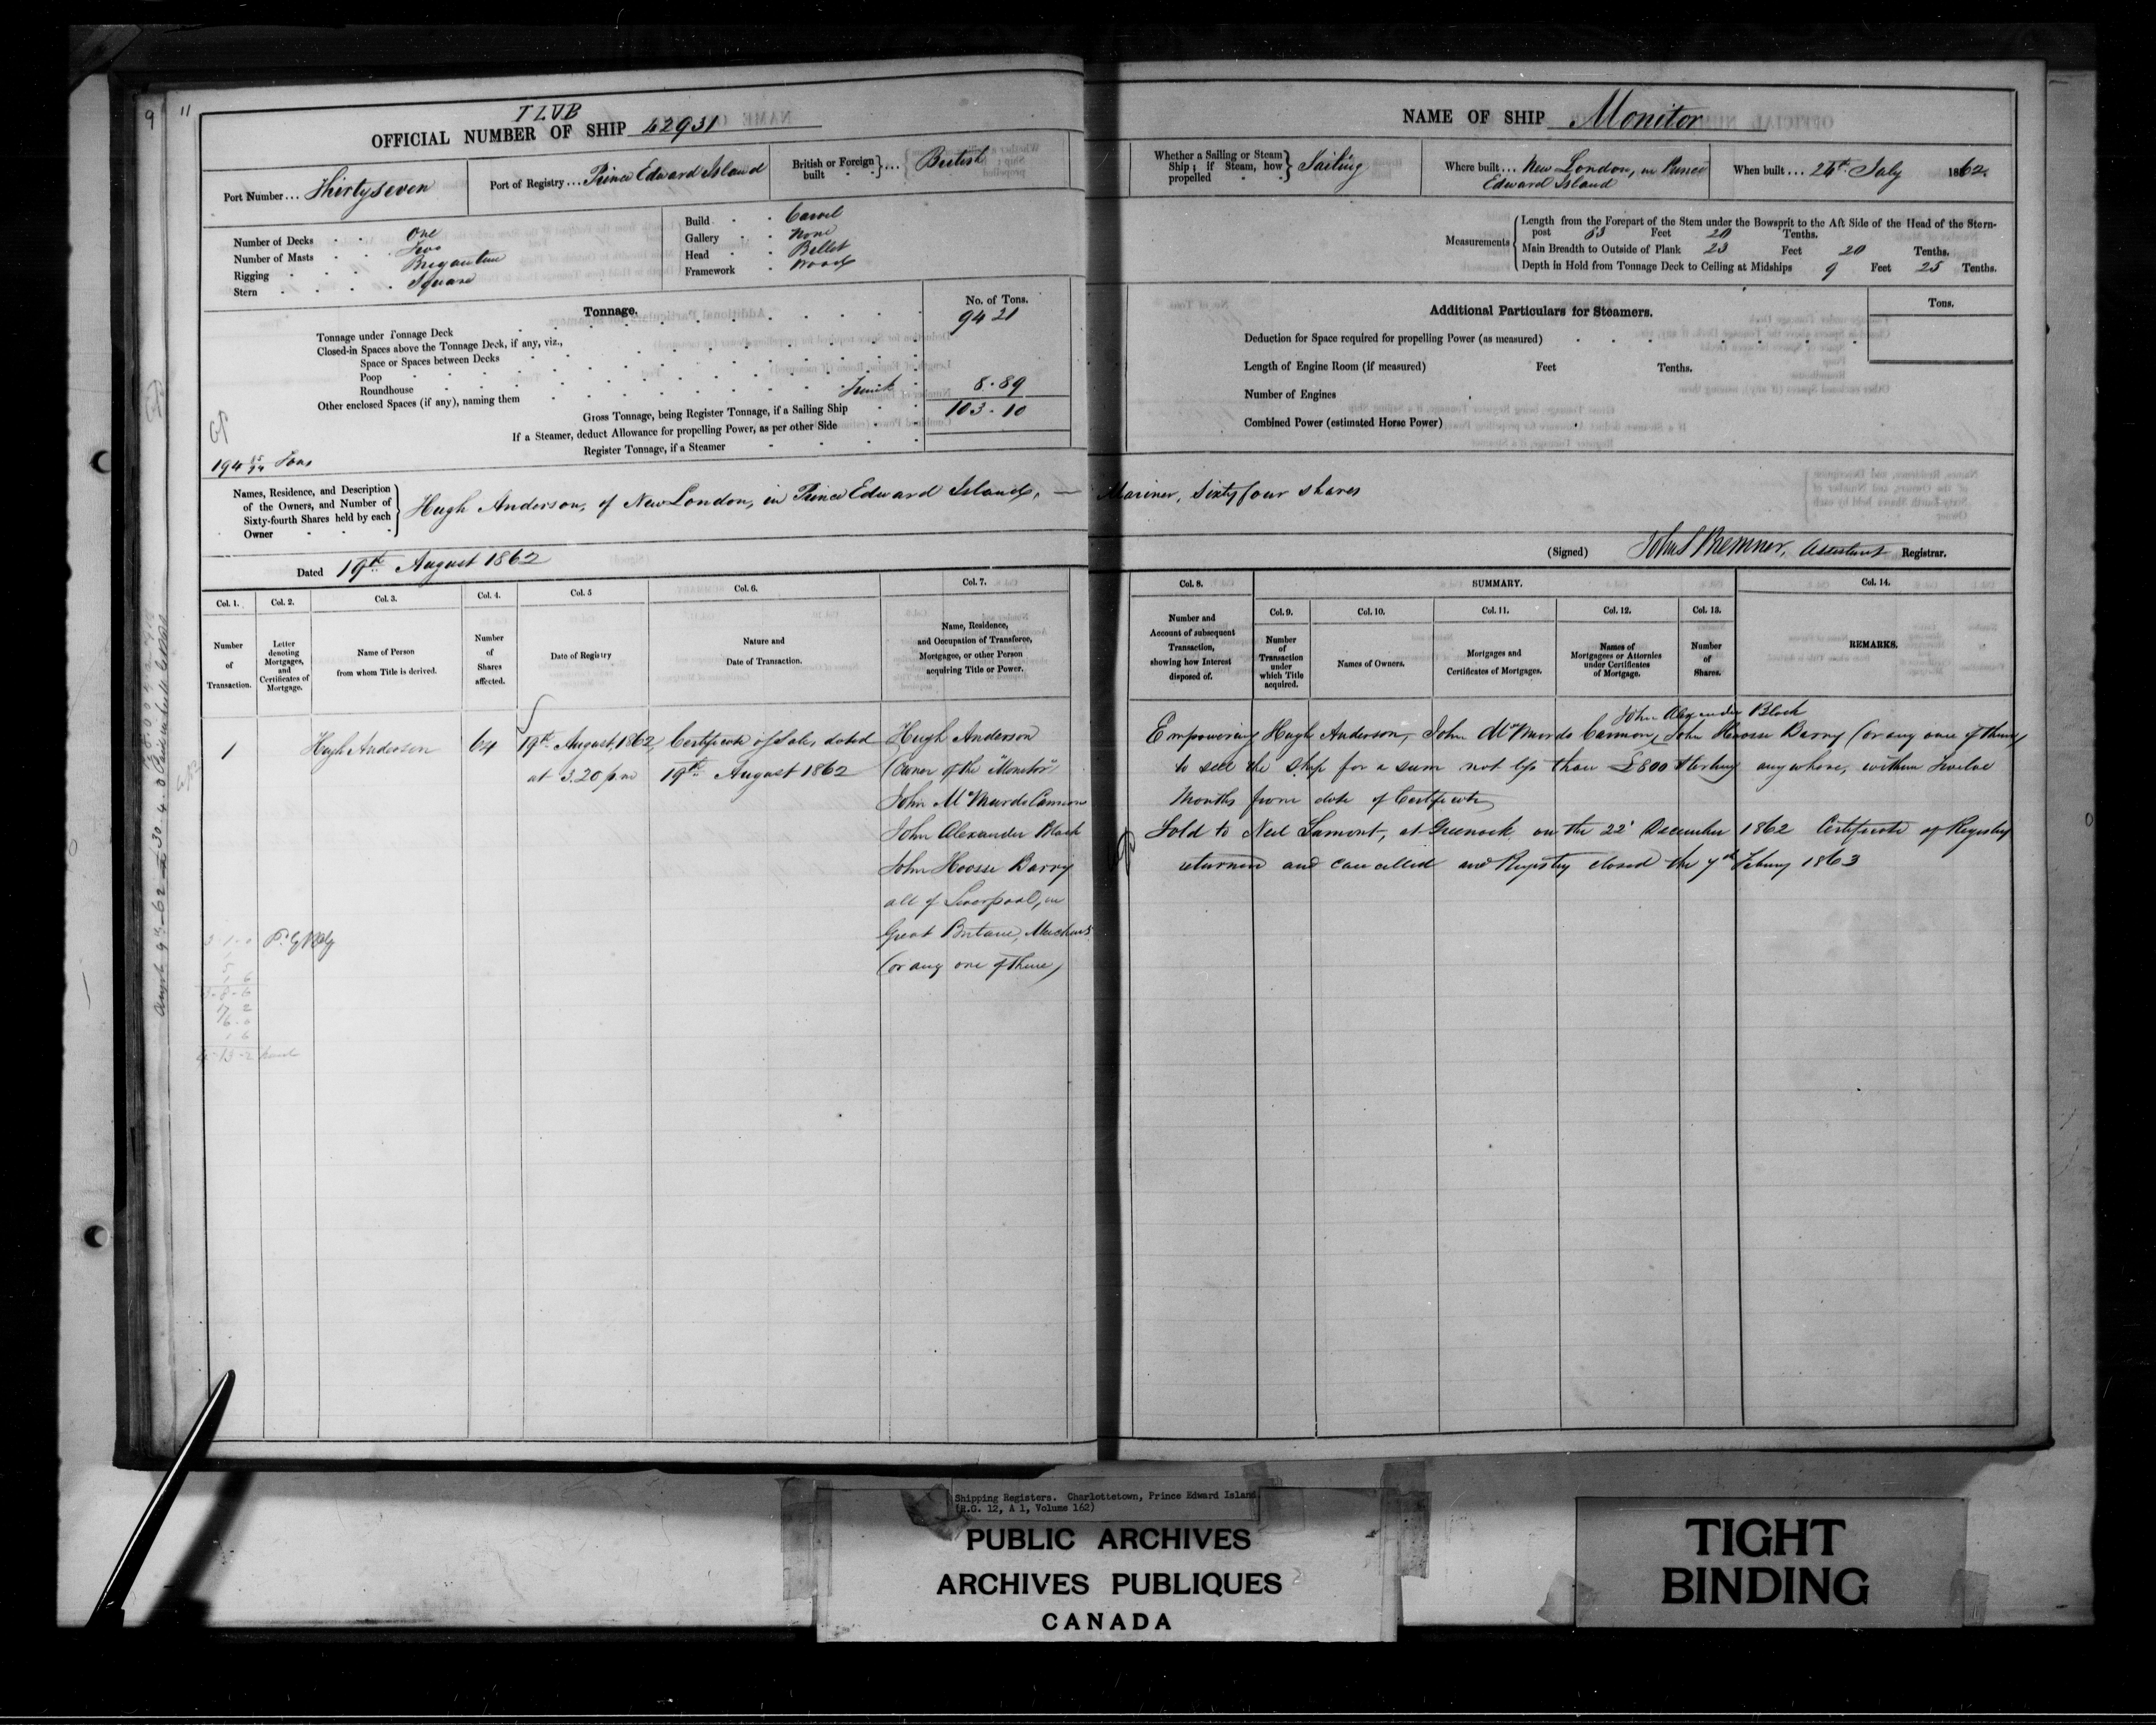 9
11
TLVB
OFFICIAL NUMBER OF SHIP 42931
Port Number ... Thirty seven
Port of Registry ... Prince Edward Island
British or Foreign built ... British
Number of Decks One
Number of Masts Two
Rigging Brigantine
Stern Square
Build Carvel
Gallery None
Head Billet
Framework Wood
Tonnage.
No. of Tons.
Tonnage under Tonnage Deck 94 21
Closed-in Spaces above the Tonnage Deck, if any, viz.,
Space or Spaces between Decks
Poop
Roundhouse
Other enclosed Spaces (if any), naming them Trunk 8.89
Gross Tonnage, being Register Tonnage, if a Sailing Ship 103.10
If a Steamer, deduct Allowance for propelling Power, as per other Side
Register Tonnage, if a Steamer
Names, Residence, and Description of the Owners, and Number of Sixty-fourth Shares held by each Owner
Hugh Anderson, of New London, in Prince Edward Island, —
Dated 19th August 1862
Col. 1. Col. 2. Col. 3. Col. 4. Col. 5 Col. 6. Col. 7.
Number of Transaction.
Letter denoting Mortgages, and Certificates of Mortgage.
Name of Person from whom Title is derived.
Number of Shares affected.
Date of Registry
Nature and Date of Transaction.
Name, Residence, and Occupation of Transferee, Mortgagee, or other Person acquiring Title or Power.
1 Hugh Anderson 64 19th August, 1862 Certificate of Sale, dated Hugh Anderson
at 3.20 p.m 19th August 1862 (Owner of the "Monitor")
John McMurdo Cannon
John Alexander Black
John Hoosse Barry
all of Liverpool, in
Great Britain, Merchants
(or any one of them)
NAME OF SHIP Monitor
Whether a Sailing or Steam Ship; if Steam, how propelled Sailing
Where built ... New London, in Prince
Edward Island
When built ... 24th July 1862.
Measurements
Length from the Forepart of the Stem under the Bowsprit to the Aft Side of the Head of the Stern-
post 83 Feet 20 Tenths.
Main Breadth to Outside of Plank 23 Feet 20 Tenths.
Depth in Hold from Tonnage Deck to Ceiling at Midships 9 Feet 25 Tenths.
Additional Particulars for Steamers.
Tons.
Deduction for Space required for propelling Power (as measured)
Length of Engine Room (if measured) Feet Tenths.
Number of Engines
Combined Power (estimated Horse Power)
Mariner, Sixty four shares
(Signed) John S Bremner, Assistant Registrar.
Col. 8. SUMMARY. Col. 14.
Col. 9. Col. 10. Col. 11. Col. 12. Col. 13.
Number and Account of subsequent Transaction, showing how Interest disposed of.
Number of Transaction under which Title acquired.
Names of Owners.
Mortgages and Certificates of Mortgages.
Names of Mortgagees or Attornies under Certificates of Mortgage.
Number of Shares.
REMARKS.
John Alexander Black
Empowering Hugh Anderson, John McMurdo Cannon, John Hoosse Barry (or any one of them)
to sell the Ship for a sum not less than £800 Sterling anywhere, within Twelve
Months from date of Certificate
Sold to Neil Lamont, at Greenock on the 22d December 1862 Certificate of Registry
returned and cancelled and Registry closed the 7th Febuary 1863
Shipping Registers. Charlottetown, Prince Edward Island
(R.G. 12, A 1, Volume 162)
PUBLIC ARCHIVES
ARCHIVES PUBLIQUES
CANADA
TIGHT
BINDING